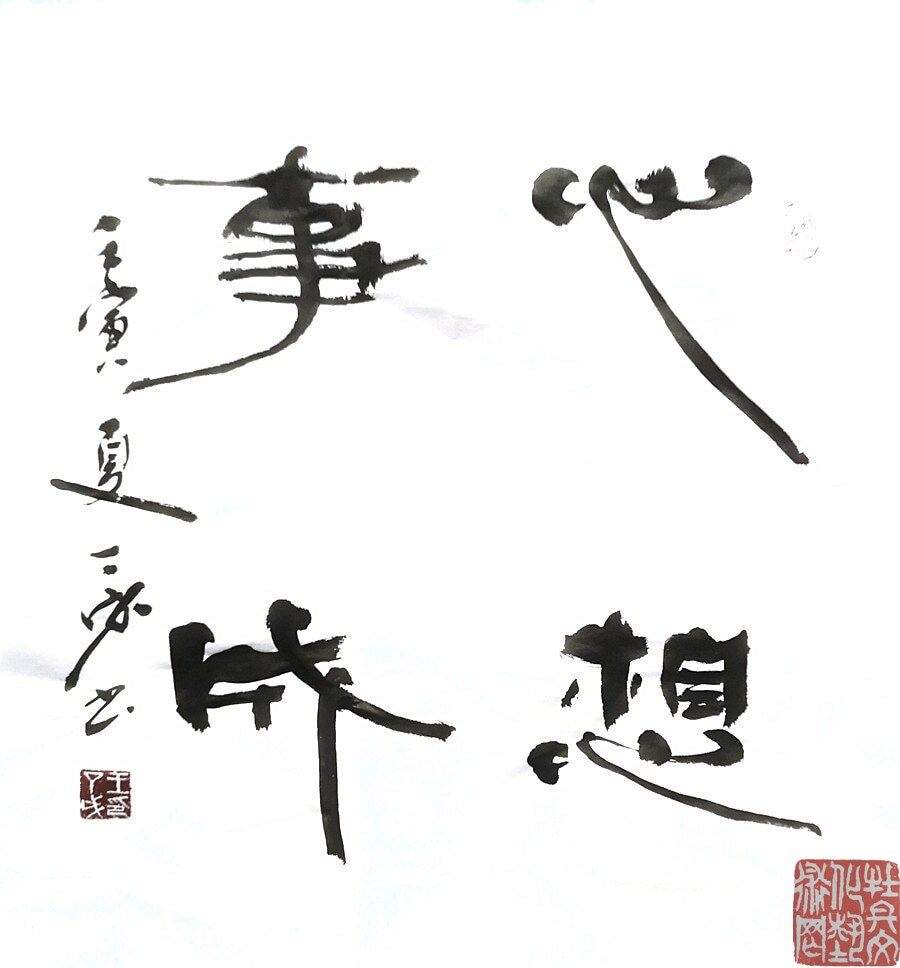 心想
事成
壬寅夏
书